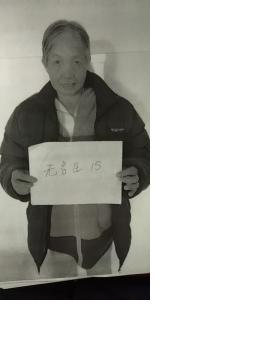 无名氏 15